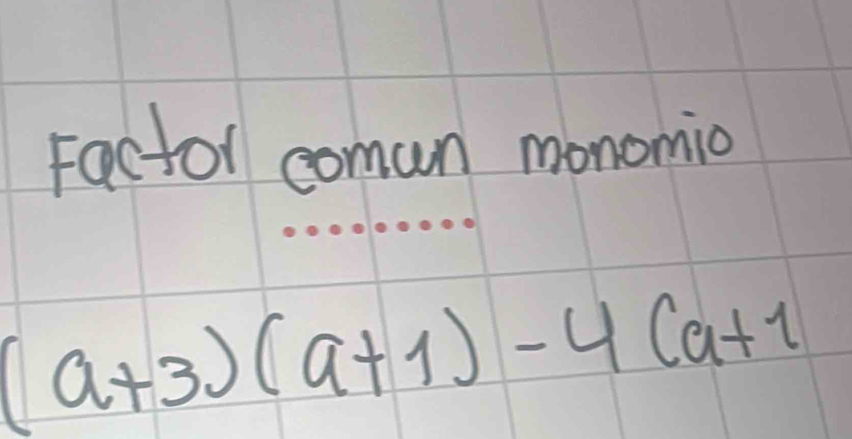 Factor comun monomio
(a+3)(a+1)-4(a+1